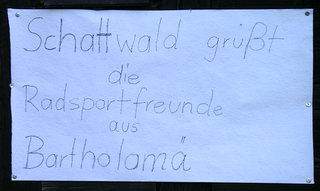 Schattwald grüßt
die
Radsportfreunde
aus
Bartholomä